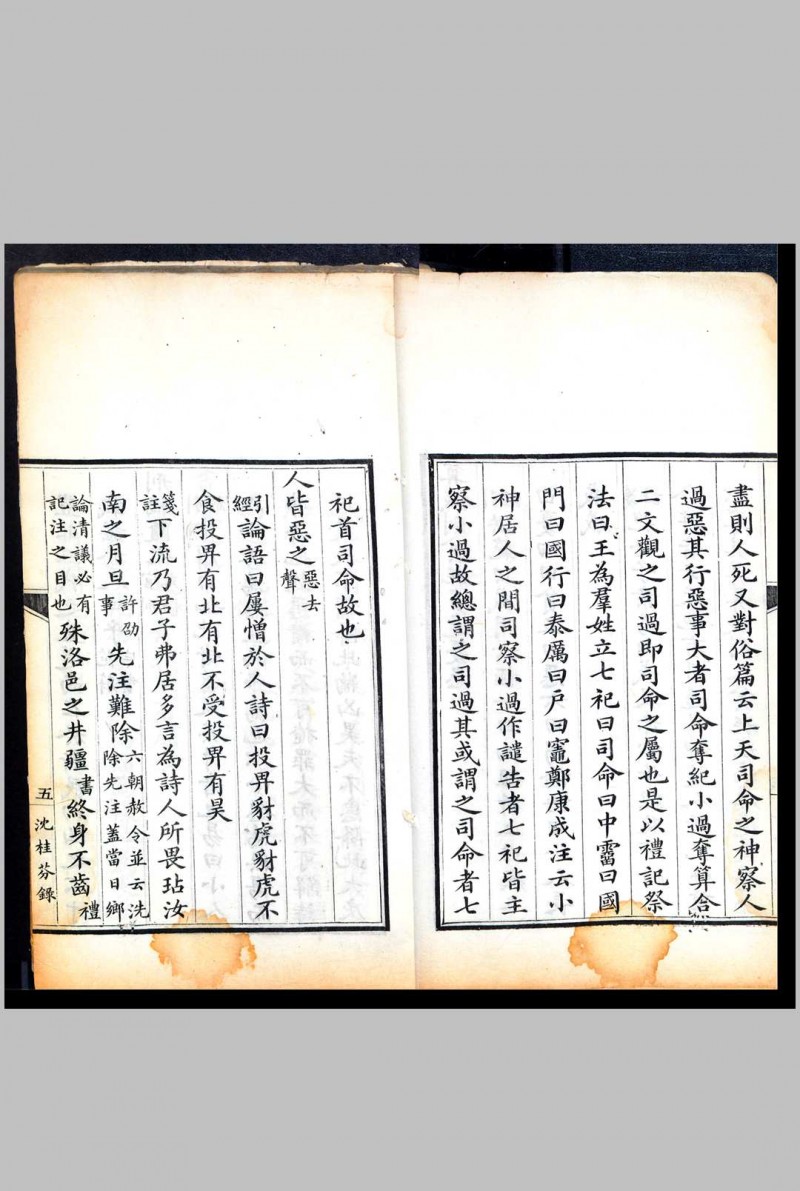 盡則人死又對俗篇云上天司命之神察人
過惡其行惡事大者司命奪紀小過奪算合
二文觀之司過即司命之屬也是以禮記祭
法曰王為羣姓立七祀曰司命曰中霤曰國
門曰國行曰泰厲曰戶曰竈鄭康成注云小
神居人之間司察小過作譴告者七祀皆主
察小過故總謂之司過其或謂之司命者七
祀首司命故也
人皆惡之惡去聲
引經論語曰屢憎於人詩曰投畀豺虎豺虎不
食投畀有北有北不受投畀有昊
箋註下流乃君子弗居多言為詩人所畏玷汝
南之月旦許劭事先注難除六朝赦令並云洗除先注蓋當日鄉
論清議必有記注之目也殊洛邑之井疆書終身不齒禮
五 沈桂芬錄